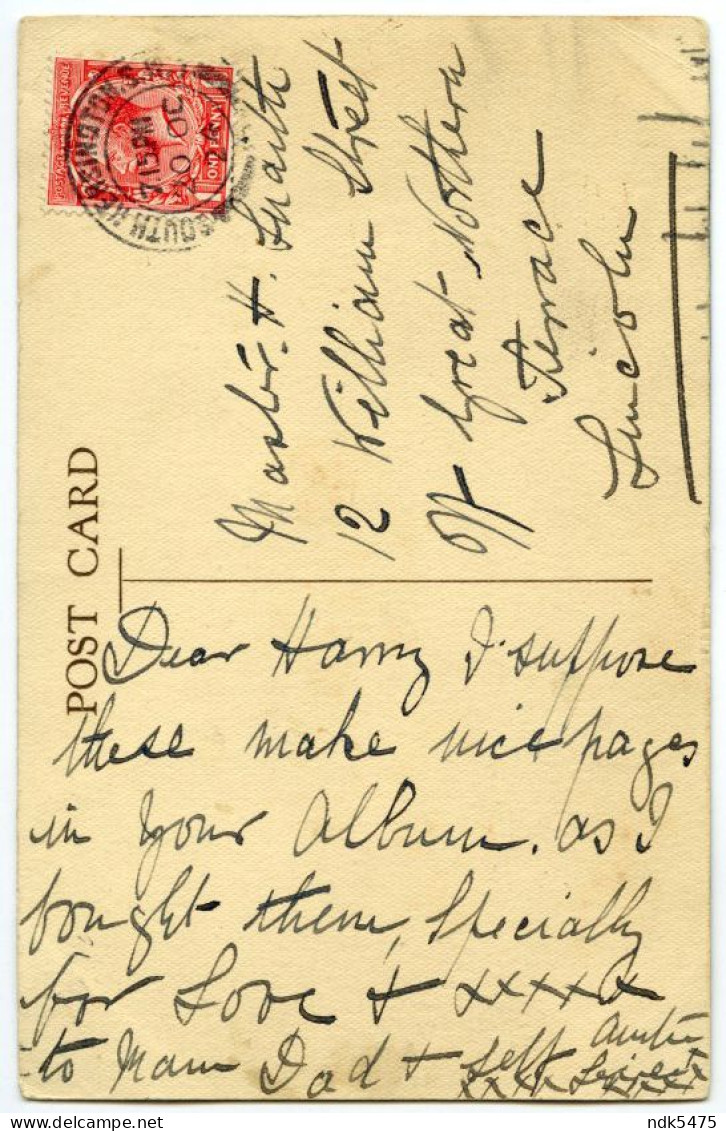 POST CARD
SOUTH KENSINGTON. S.W.
7.15 PM
OC
POSTAGE REVENUE
ONE PENNY
Master. H. Smith
12 William Street
off Great Northern
Terrace
Lincoln
Dear Harry I suppose
these make nice pages
in your Album. as I
bought them, Specially
for Love + xxxxx
to Mam Dad + Self
xxxx xxxx
delcampe.net
ndk5475